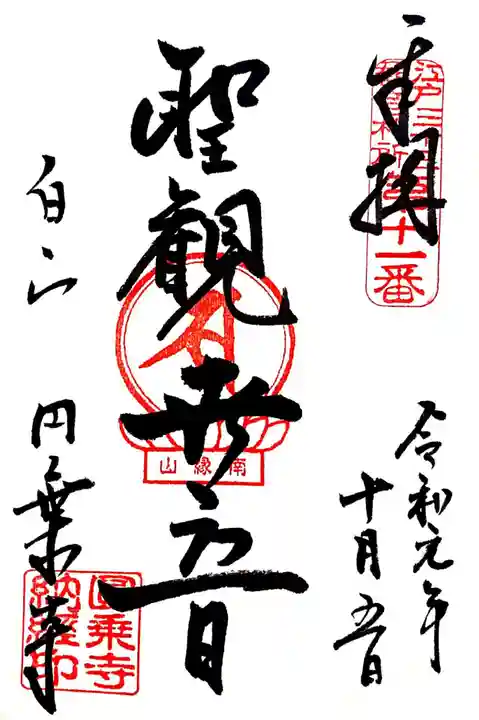 奉拝
江戸三十三
観音札所第十一番
令和元年
十月五日
聖観世音
南縁山
白山
円乗寺
圓乗寺
納経印